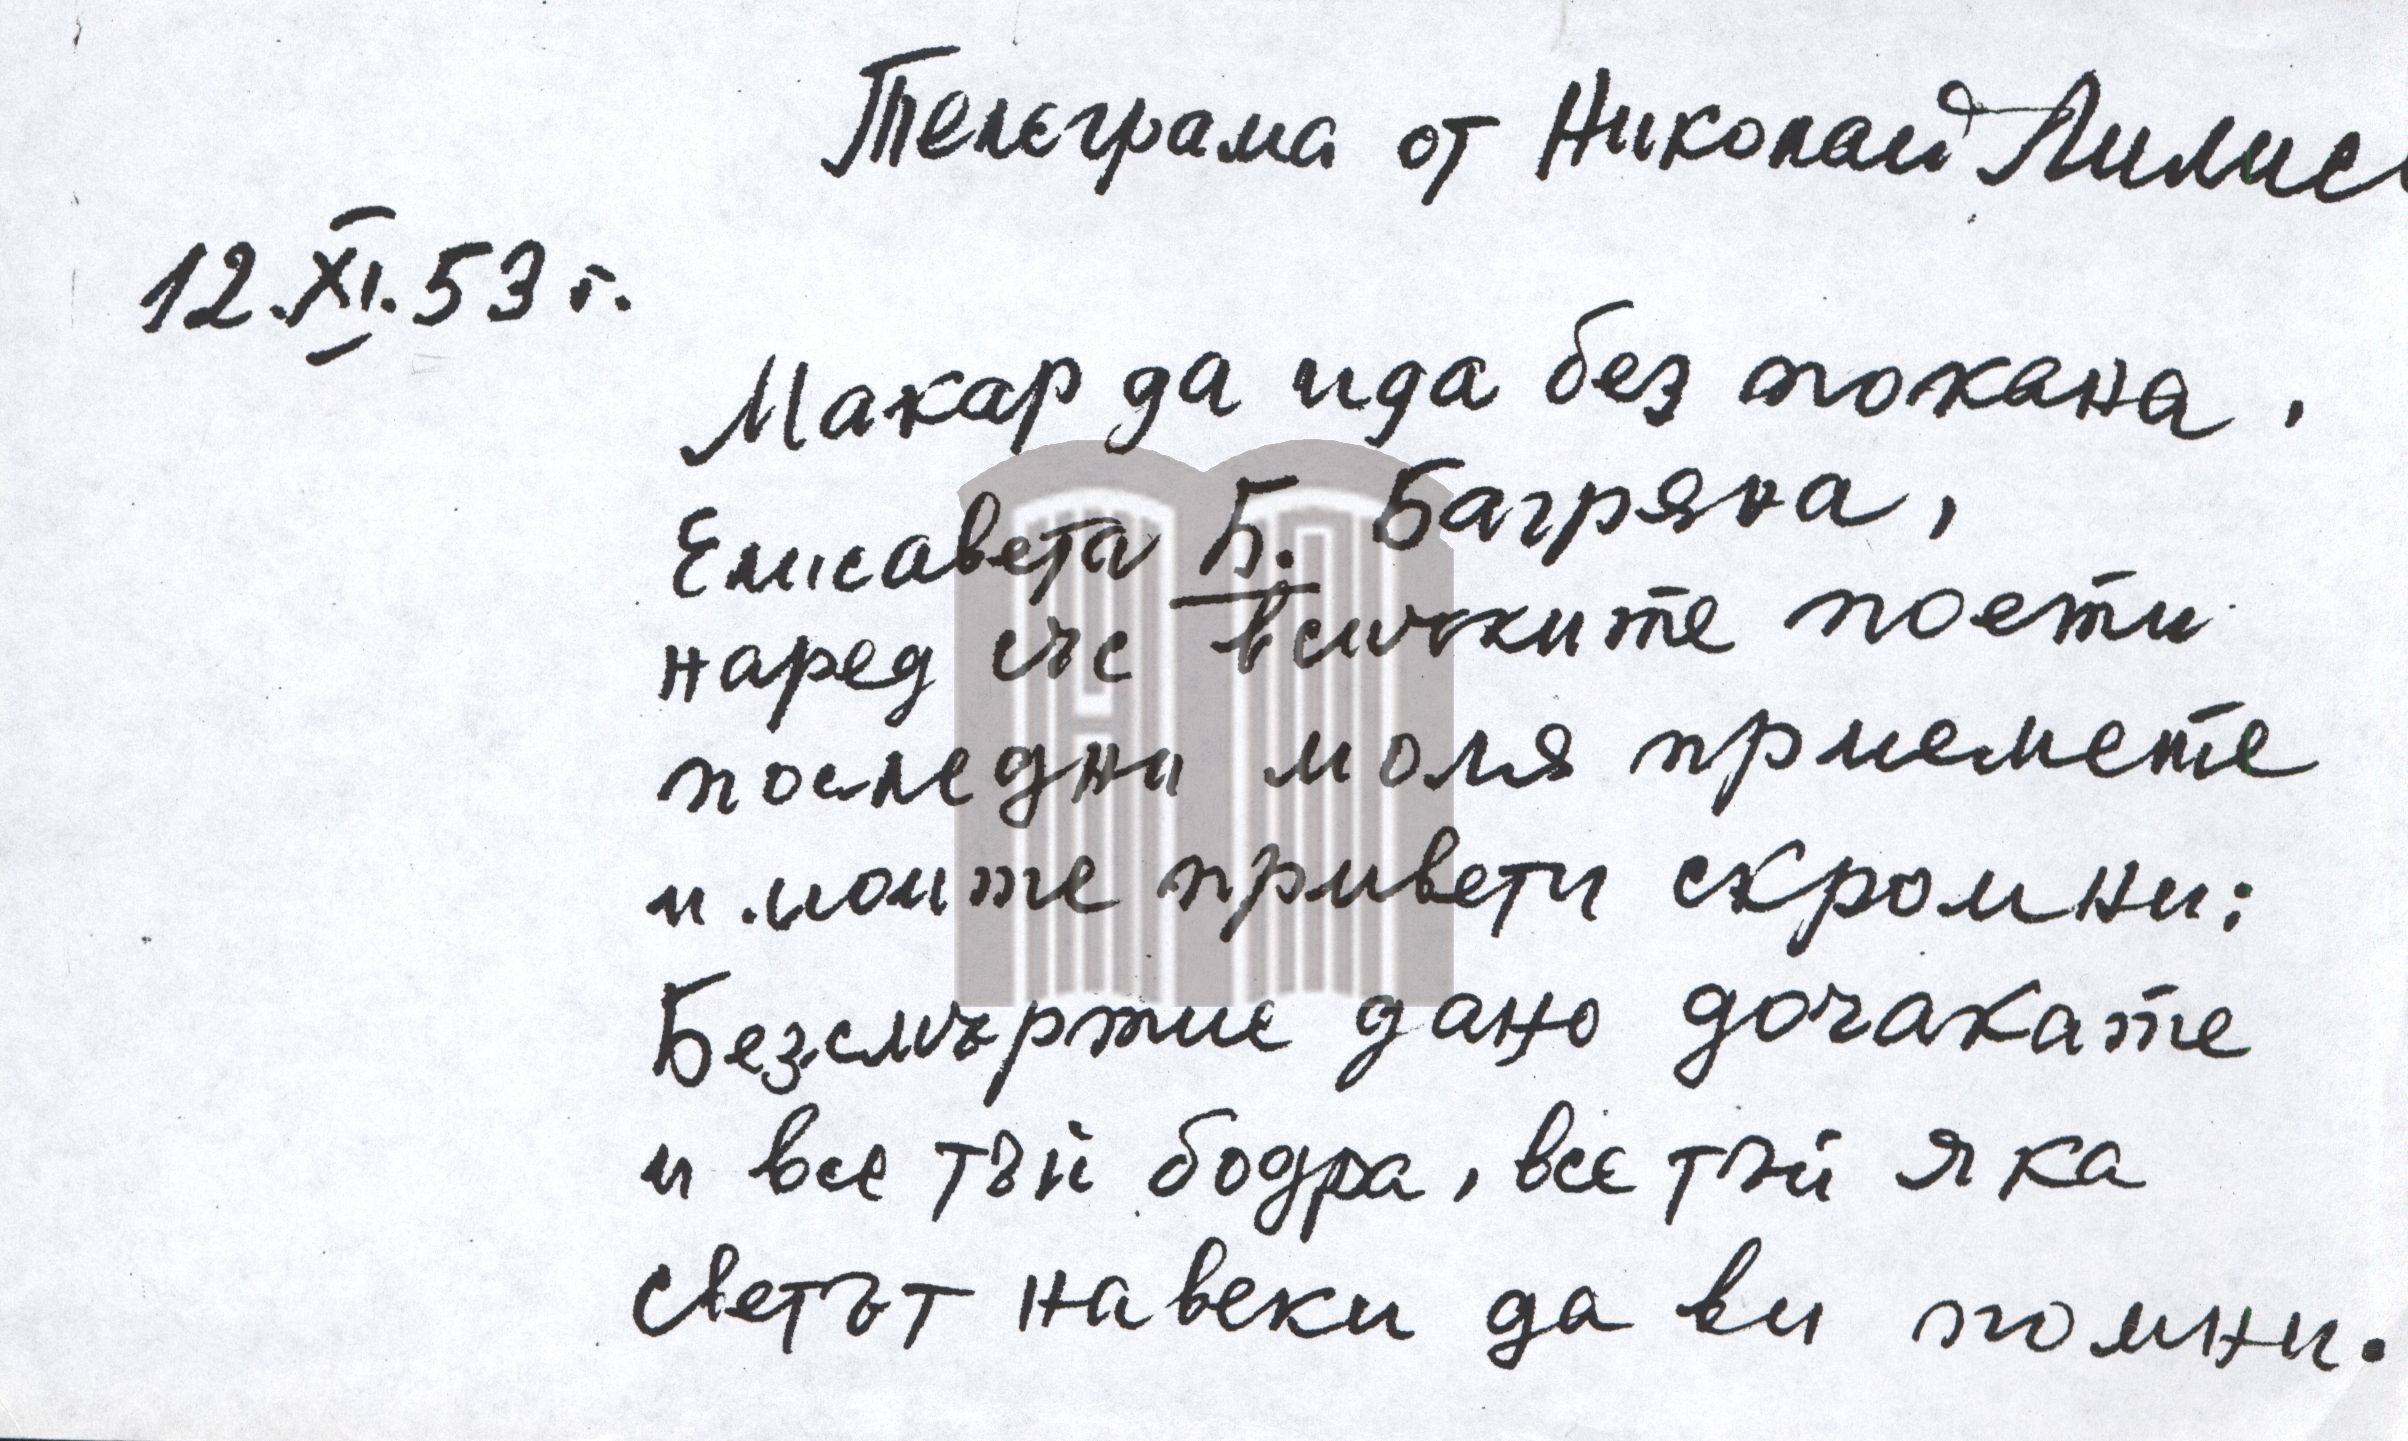 Телеграма от Николай Лилие
12.XI.53 г.
Макар да ида без покана,
Елисавета Б. Багряна,
наред със всичките поети
последни моля приемете
и моите привети скромни:
Безсмъртие дано дочакате
и все тъй бодра, все тъй яка
светът навеки да ви помни.